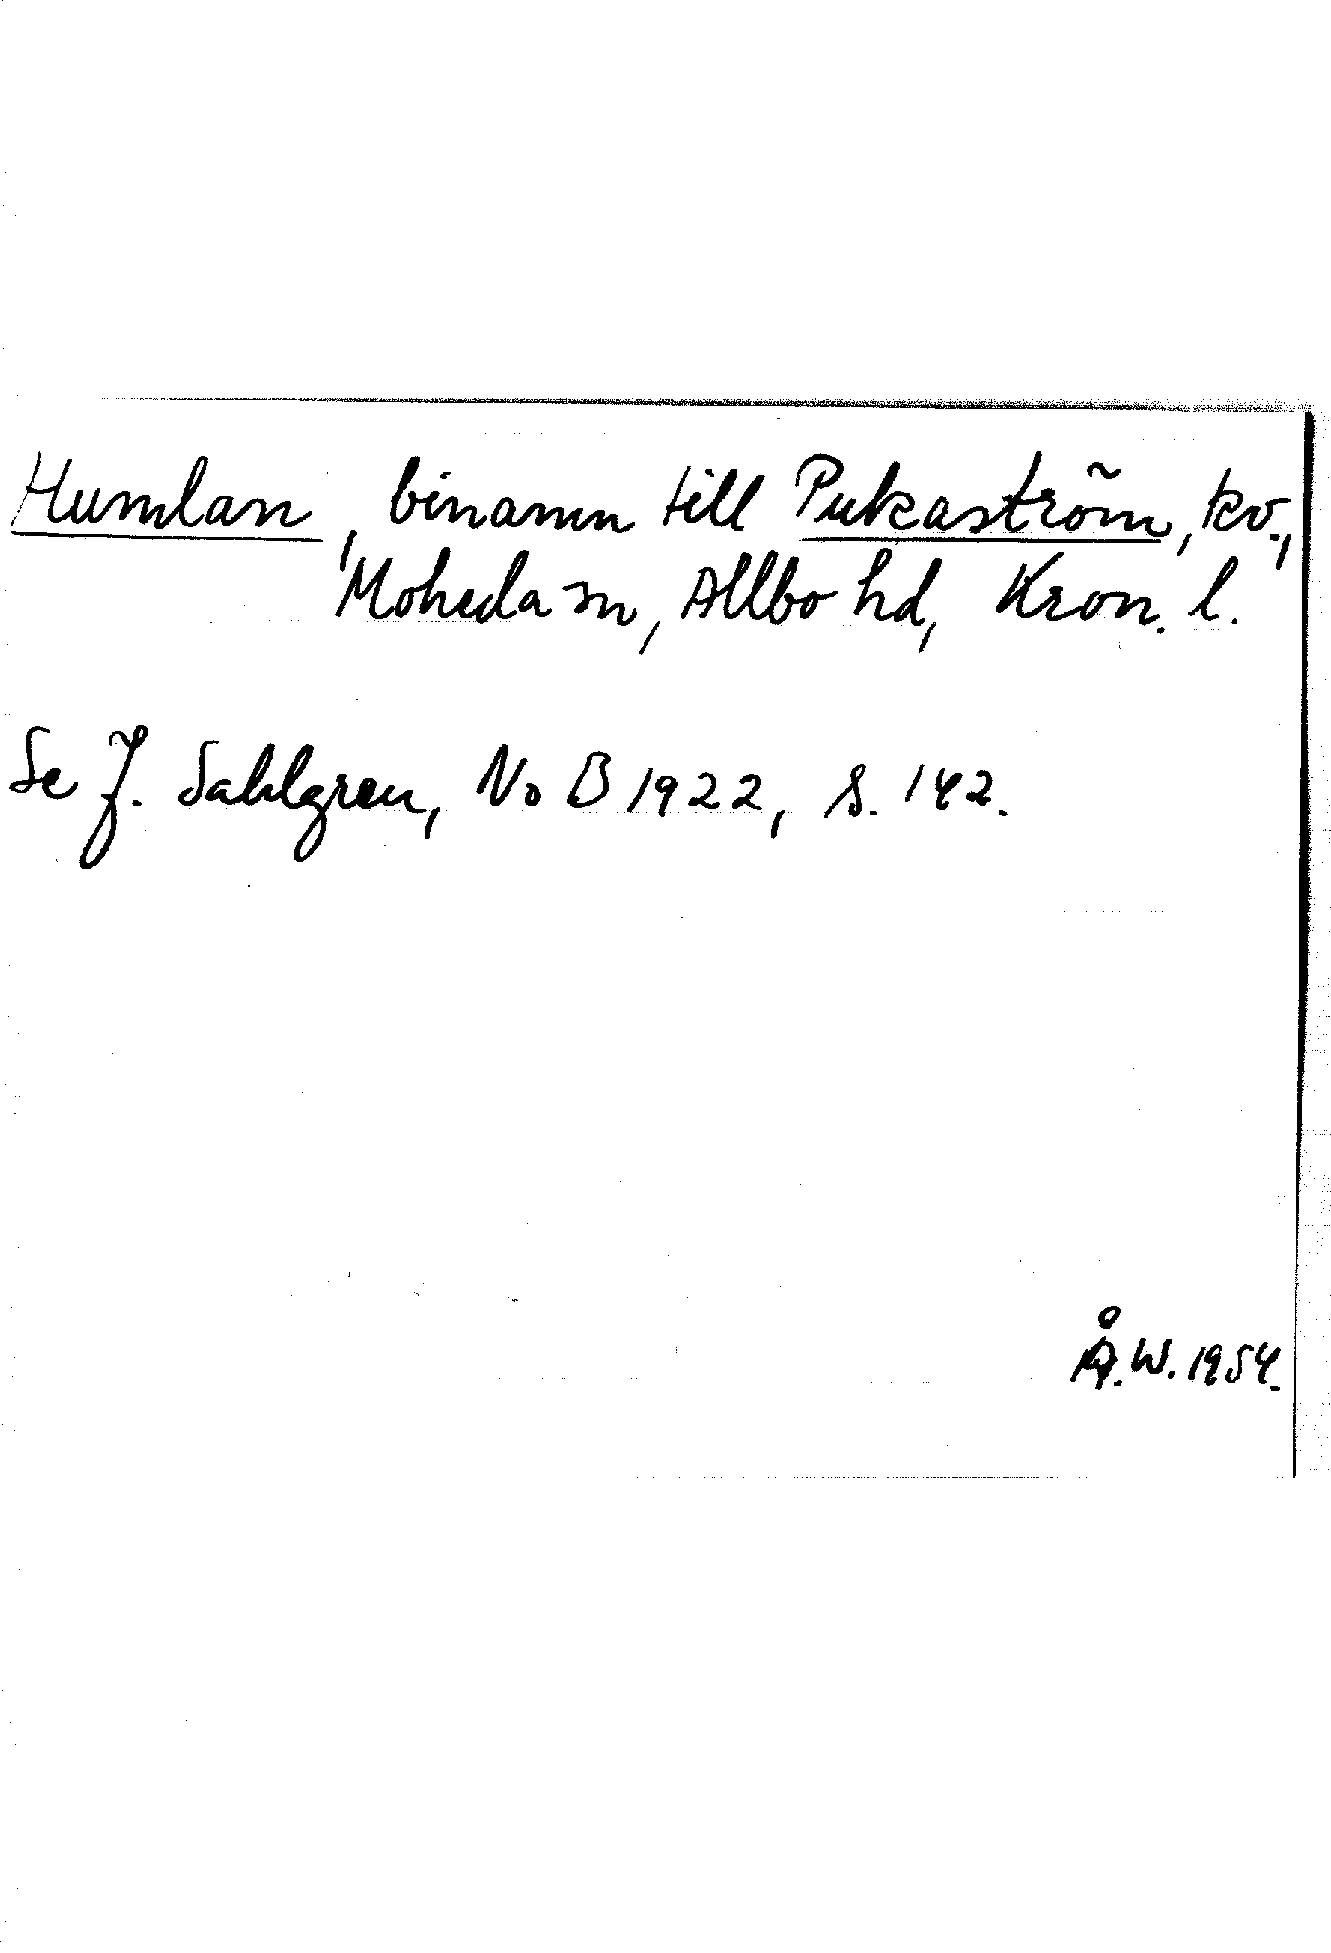 Humlan, binamn till Pukaström, kv.,
Moheda sn, Allbo hd, Kron. l.
Se J. Sahlgren, NoB 1922, s. 142.
Å.W. 1954.